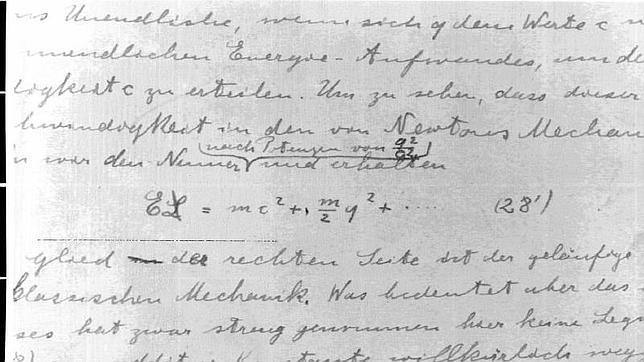 ns Unendliche, wenn sich q dem Werte c n
unendlichen Energie-Aufwandes, um de
igkeit c zu erteilen. Um zu sehen, dass dieser
hwindigkeit in den von Newtons Mechan
nach Potenzen von q²/c²
wir den Nenner und erhalten
EL = mc² + m/2 q² + .... (28')
glied der rechten Seite ist der geläufige
klassischen Mechanik. Was bedeutet aber das
ses hat zwar streng genommen hier keine Leg
willkürlich